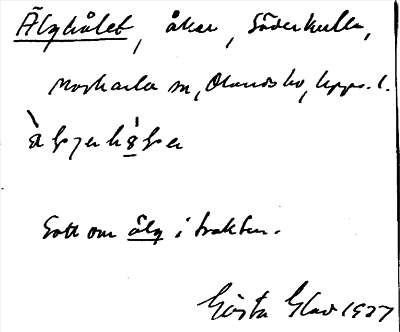 Älghålet, åker, Söderkulla,
Morkarla sn, Olands hd, Upps. l.
Gott om älg i trakten.
Gösta Glad 1927